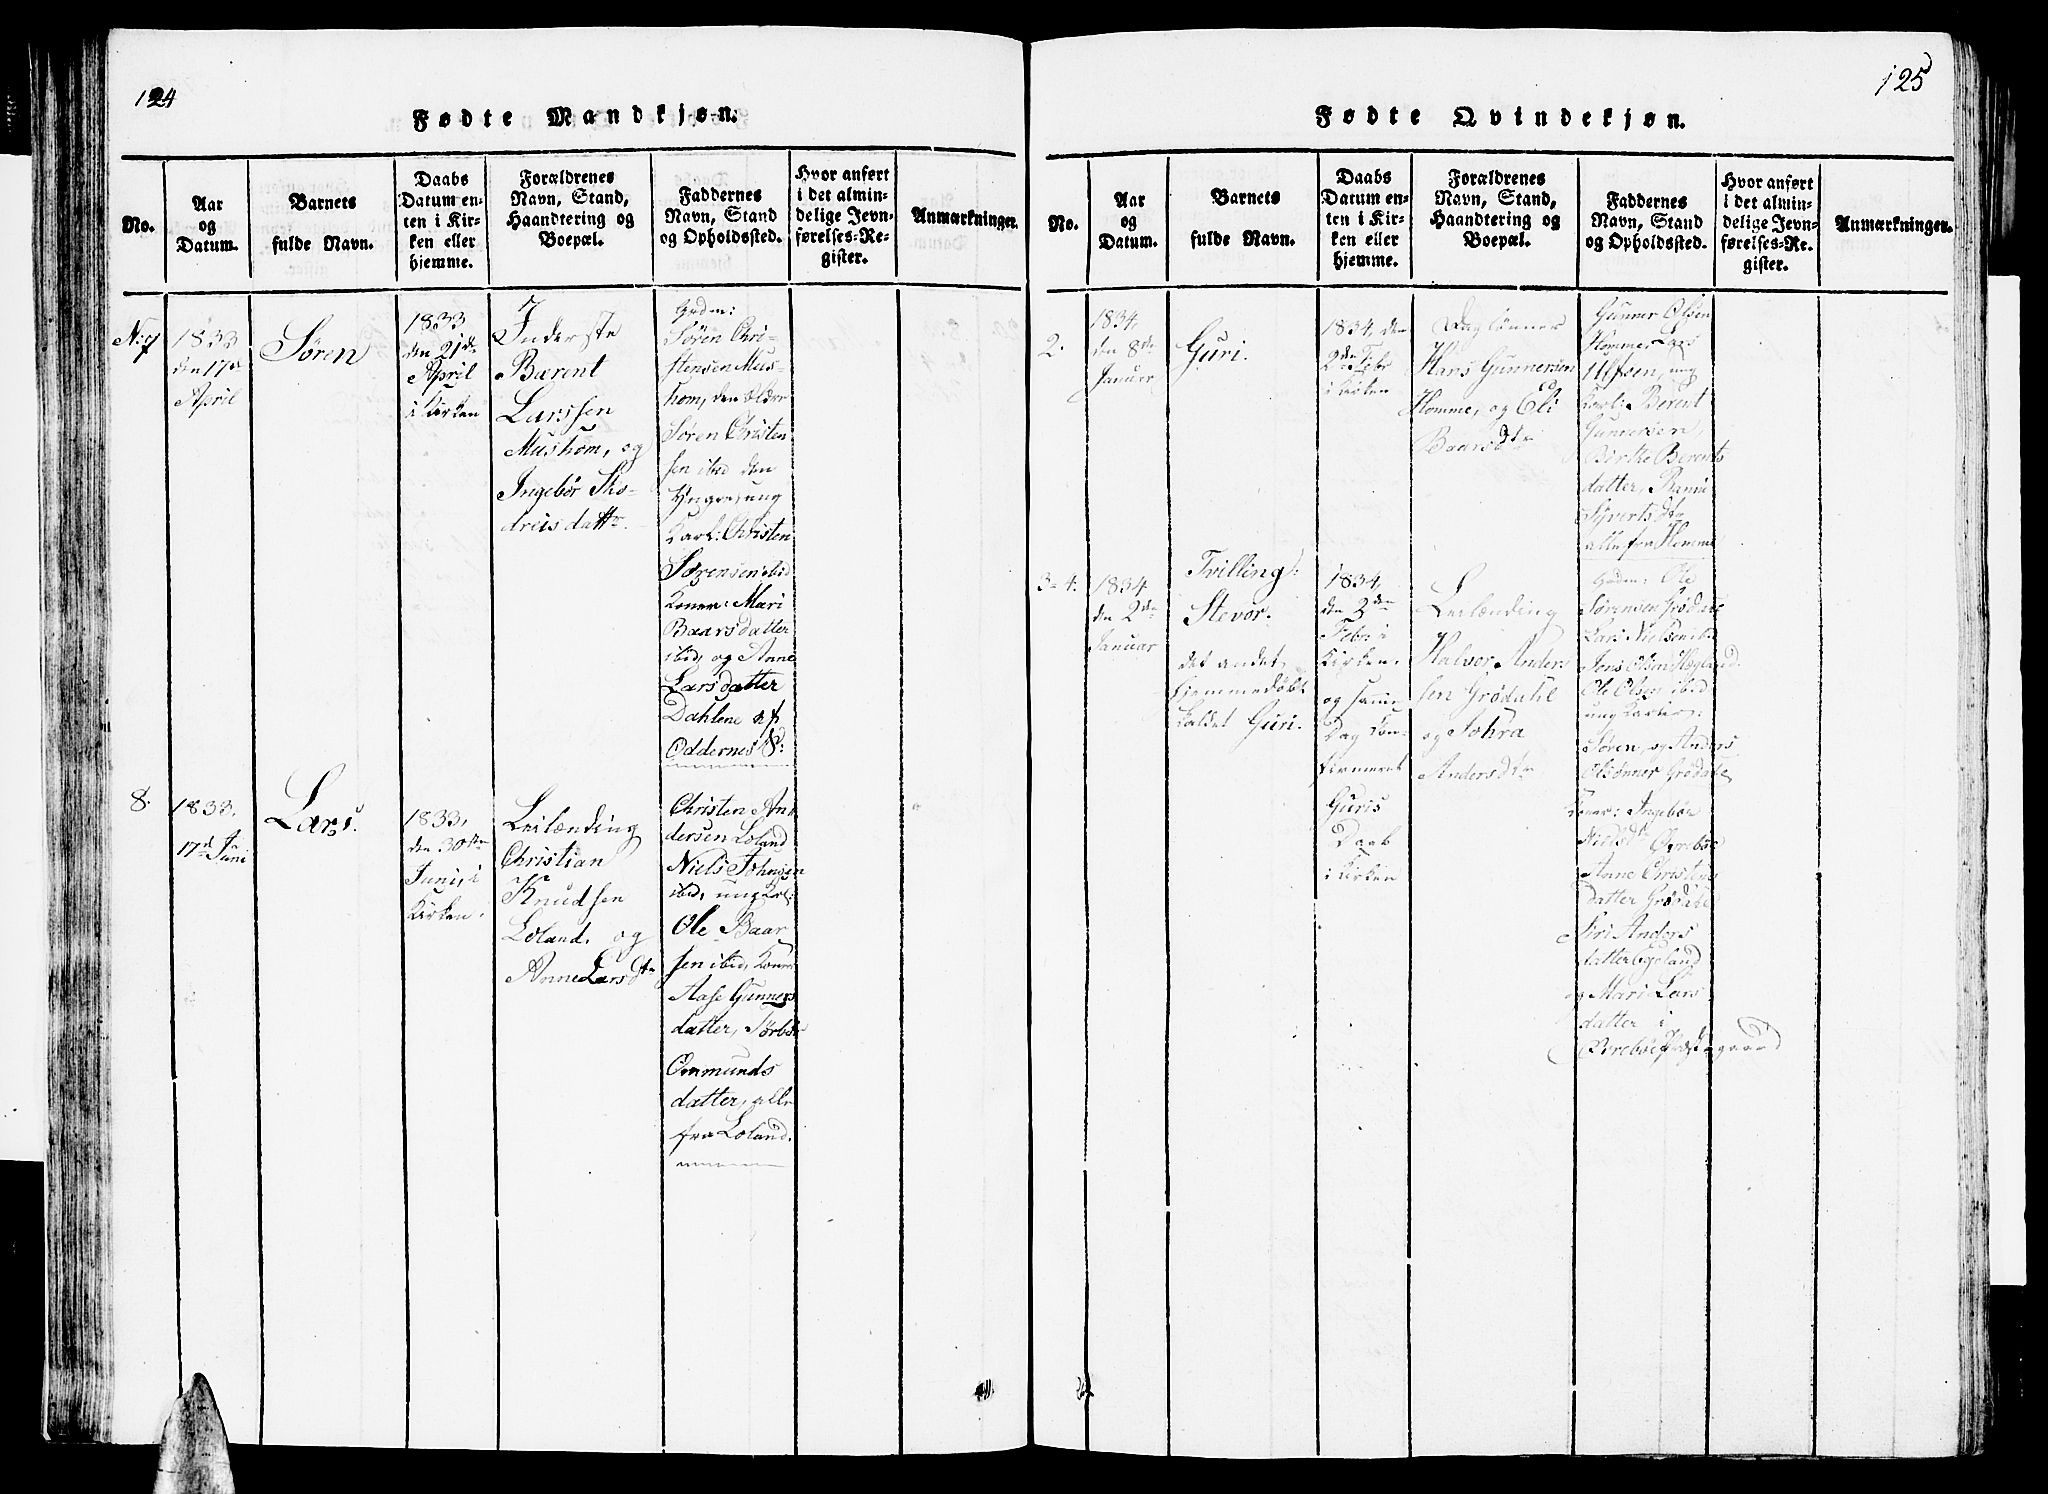 124
Fødte Mandkjøn.
No.
Aar
og
Datum.
Barnets
fulde Navn.
Daabs
Datum en-
ten i Kir-
ken eller
hjemme.
Forældrenes
Navn, Stand,
Haandtering og
Boepæl.
Faddernes
Navn, Stand
og Opholdssted.
Hvor anført
i det almin-
delige Jevn-
førelses-Re-
gister.
Anmærkninger.
N: 7
1833
den 17de
April
Søren
1833
den 21de
April
i Kirken
Inderste
Bærent
Larssen
Mushom, og
Ingebør Tho-
dreisdattr.
Gudm:
Søren Chri-
stensen Mus-
hom, den ældre
Søren Christen
sen ibid den
Yngre, ung
Karl: Christen
Sørensen ibid
Koner: Mari
Baarsdatter
ibid, og Anne
Larsdatter
Dahlene af
Oddernes S:
8.
1833,
17de Juni
Lars.
1833,
den 30te
Juni, i
Kirken.
Leilænding
Christian
Knudsen
Loland, og
Anne Larsdtr
Christen An
dersen Loland
Niels Johnsen
ibid, ung Krl:
Ole Baar
sen ibid, Koner
Aase Gunners
datter, Tørbør
Ommunds
datter, alle
fra Loland.
125
Fødte Qvindekjøn.
No.
Aar
og
Datum.
Barnets
fulde Navn.
Daabs
Datum en-
ten i Kir-
ken eller
hjemme.
Forældrenes
Navn, Stand,
Haandtering og
Boepæl.
Faddernes
Navn, Stand
og Opholdssted.
Hvor anført
i det almin-
delige Jevn-
førelses-Re-
gister.
Anmærkninger.
2.
1834,
den 8de
Januer
Guri.
1834, den
2den Febr
i Kirken
Daglønner
Hans Gunnersen
Homme, og Eli
Baarsdtr
Gunner Olsen
Homme, Lars
Ulfsen, ung
Karl: Berent
Gunnersen,
Birthe Berents
datter,
Syvertsdtr
alle fra Homme
3-4.
1834
den 2de
Januar
Tvilling:
Stevor.
det andet,
hjemmedøbt
kaldet Guri.
1834,
den 2den
Febr i
Kirken,
og samme
Dag Con-
firmeret
Guris
Daab
i Kirken
Leilænding
Halvor Anders
sen Grødahl
og Tohra
Andersdtr
Gudm: Ole
Sørensen Grødahl
Lars Nielsen ib:
Jens Olsen Høgland
Ole Olsen ibid
ung Karler:
Søren, og Anders
Olsønner Grødahl
Koner: Ingebør
Nielsdtr Øvrebøe
Anne Christens
datter Grødahl
Siri Anders
datter Egeland
og Mari Lars
datter i
Øvrebøe Præstegaard